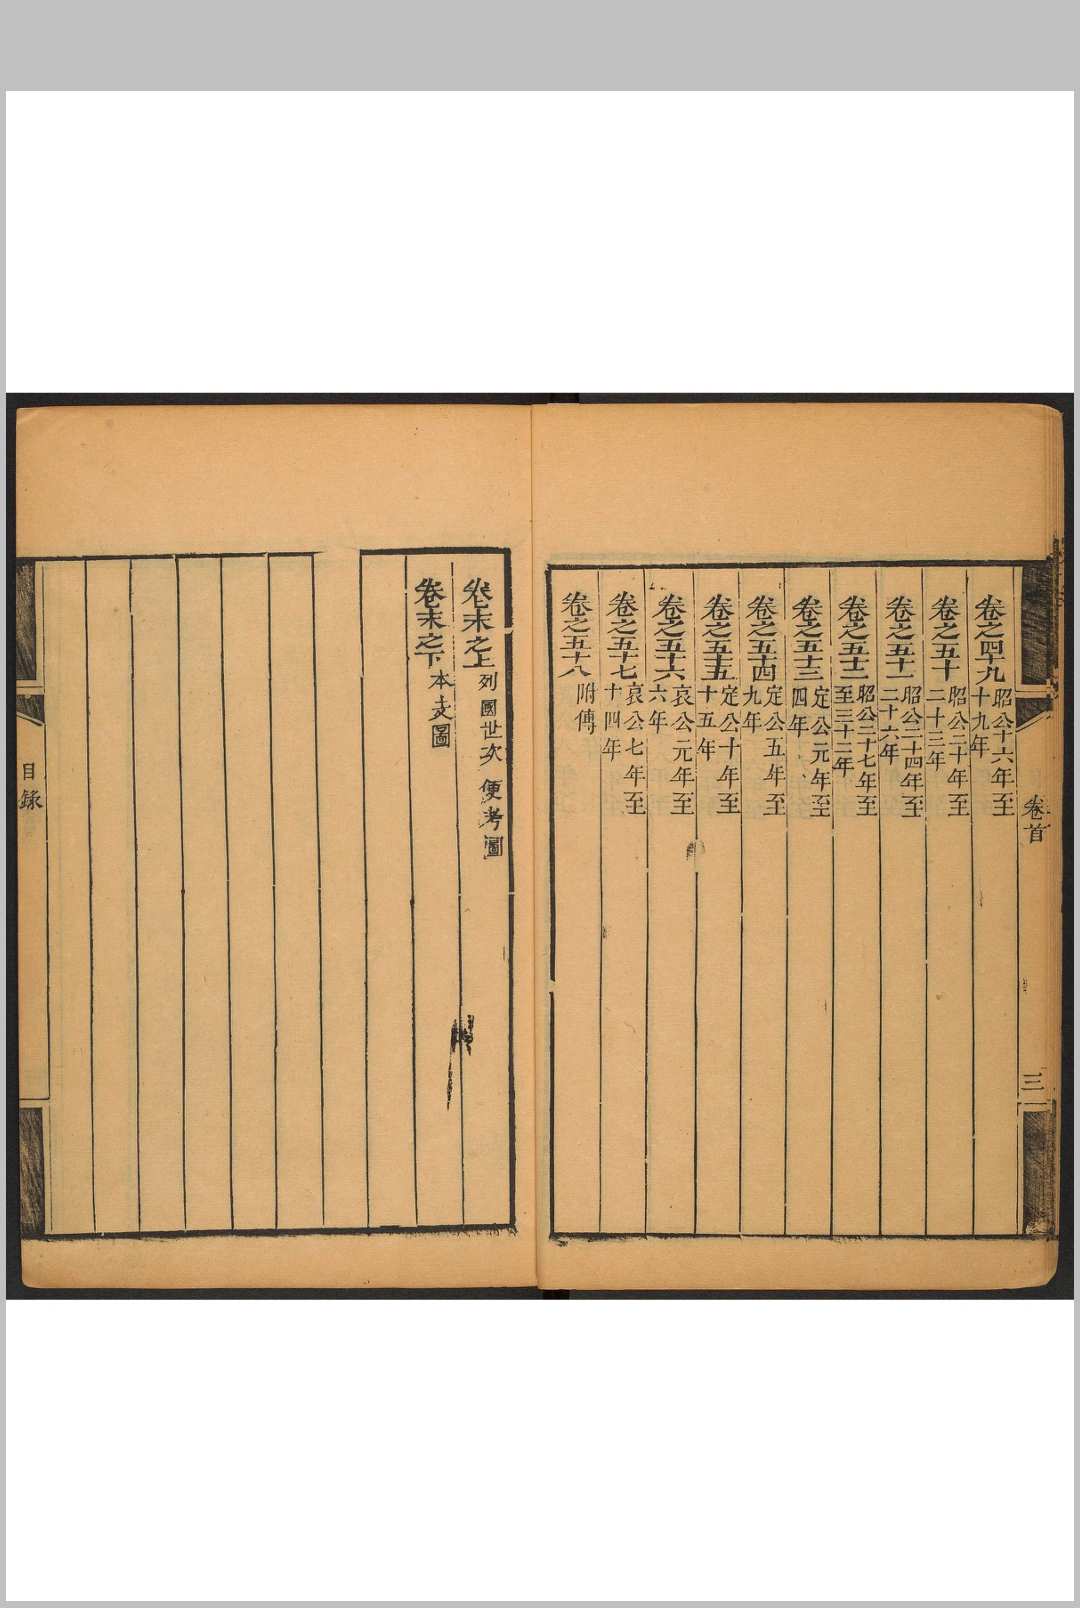 卷首
三
卷之四十九 昭公十六年至十九年
卷之五十 昭公二十年至二十三年
卷之五十一 昭公二十四年至二十六年
卷之五十二 昭公二十七年至三十二年
卷之五十三 定公元年至四年
卷之五十四 定公五年至九年
卷之五十五 定公十年至十五年
卷之五十六 哀公元年至六年
卷之五十七 哀公七年至十四年
卷之五十八 附傳
卷末之上 列國世次 便考圖
卷末之下 本支圖
目錄